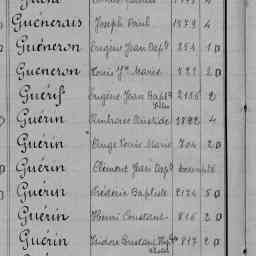 Guénerais Joseph Paul 1579 4
Guéneron Eugène Jean Bapt. 254 10
Gueneron Louis Marie 821 20
Guérif Eugène Jean Bapt. 2156 2
Guérin Ambroise Aristide 1892 4
Guérin Ange Louis Marie 704 20
Guérin Clément Jean Bapt. exempté
Guérin Frédéric Baptiste 2124 50
Guérin Henri Constant 816 20
Guérin Isidore Constant 817 20